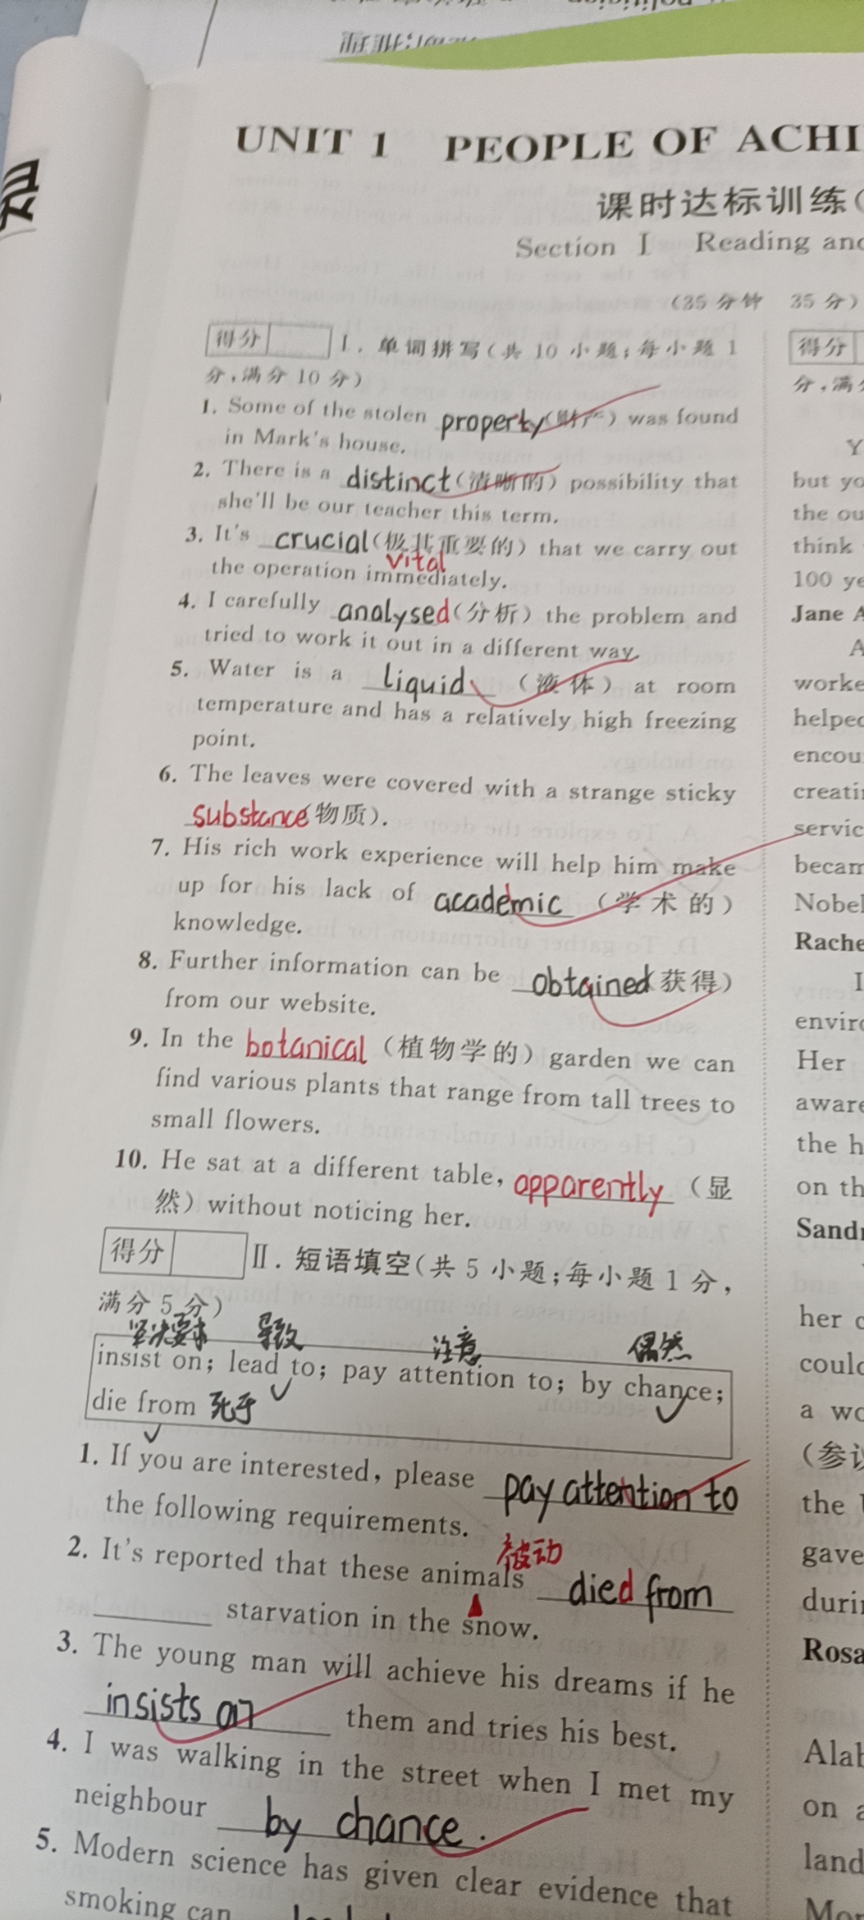 UNIT 1 PEOPLE OF ACHI
课时达标训练(
Section Ⅰ Reading and
(35分钟 35分)
得分 Ⅰ.单词拼写(共10小题;每小题1
分,满分10分)
1. Some of the stolen property(财产) was found
in Mark's house.
2. There is a distinct(清晰的) possibility that
she'll be our teacher this term.
3. It's crucial(极其重要的) that we carry out
vital
the operation immediately.
4. I carefully analysed(分析) the problem and
tried to work it out in a different way.
5. Water is a liquid (液体) at room
temperature and has a relatively high freezing
point.
6. The leaves were covered with a strange sticky
substance(物质).
7. His rich work experience will help him make
up for his lack of academic (学术的)
knowledge.
8. Further information can be obtained(获得)
from our website.
9. In the botanical (植物学的) garden we can
find various plants that range from tall trees to
small flowers.
10. He sat at a different table, apparently (显
然) without noticing her.
得分 Ⅱ.短语填空(共5小题;每小题1分,
满分5分)
坚决要求 导致 注意 偶然
insist on; lead to; pay attention to; by chance;
die from 死于
1. If you are interested, please pay attention to
the following requirements.
被动
2. It's reported that these animals died from
starvation in the snow.
3. The young man will achieve his dreams if he
insists on them and tries his best.
4. I was walking in the street when I met my
neighbour by chance.
5. Modern science has given clear evidence that
smoking can
得分
分,满
Y
but yo
the ou
think
100 ye
Jane A
A
worke
helped
encou
creati
servic
becam
Nobel
Rache
I
enviro
Her
aware
the h
on th
Sandr
her c
could
a wo
(参议
the
gave
durin
Rosa
Alab
on a
land
Mor